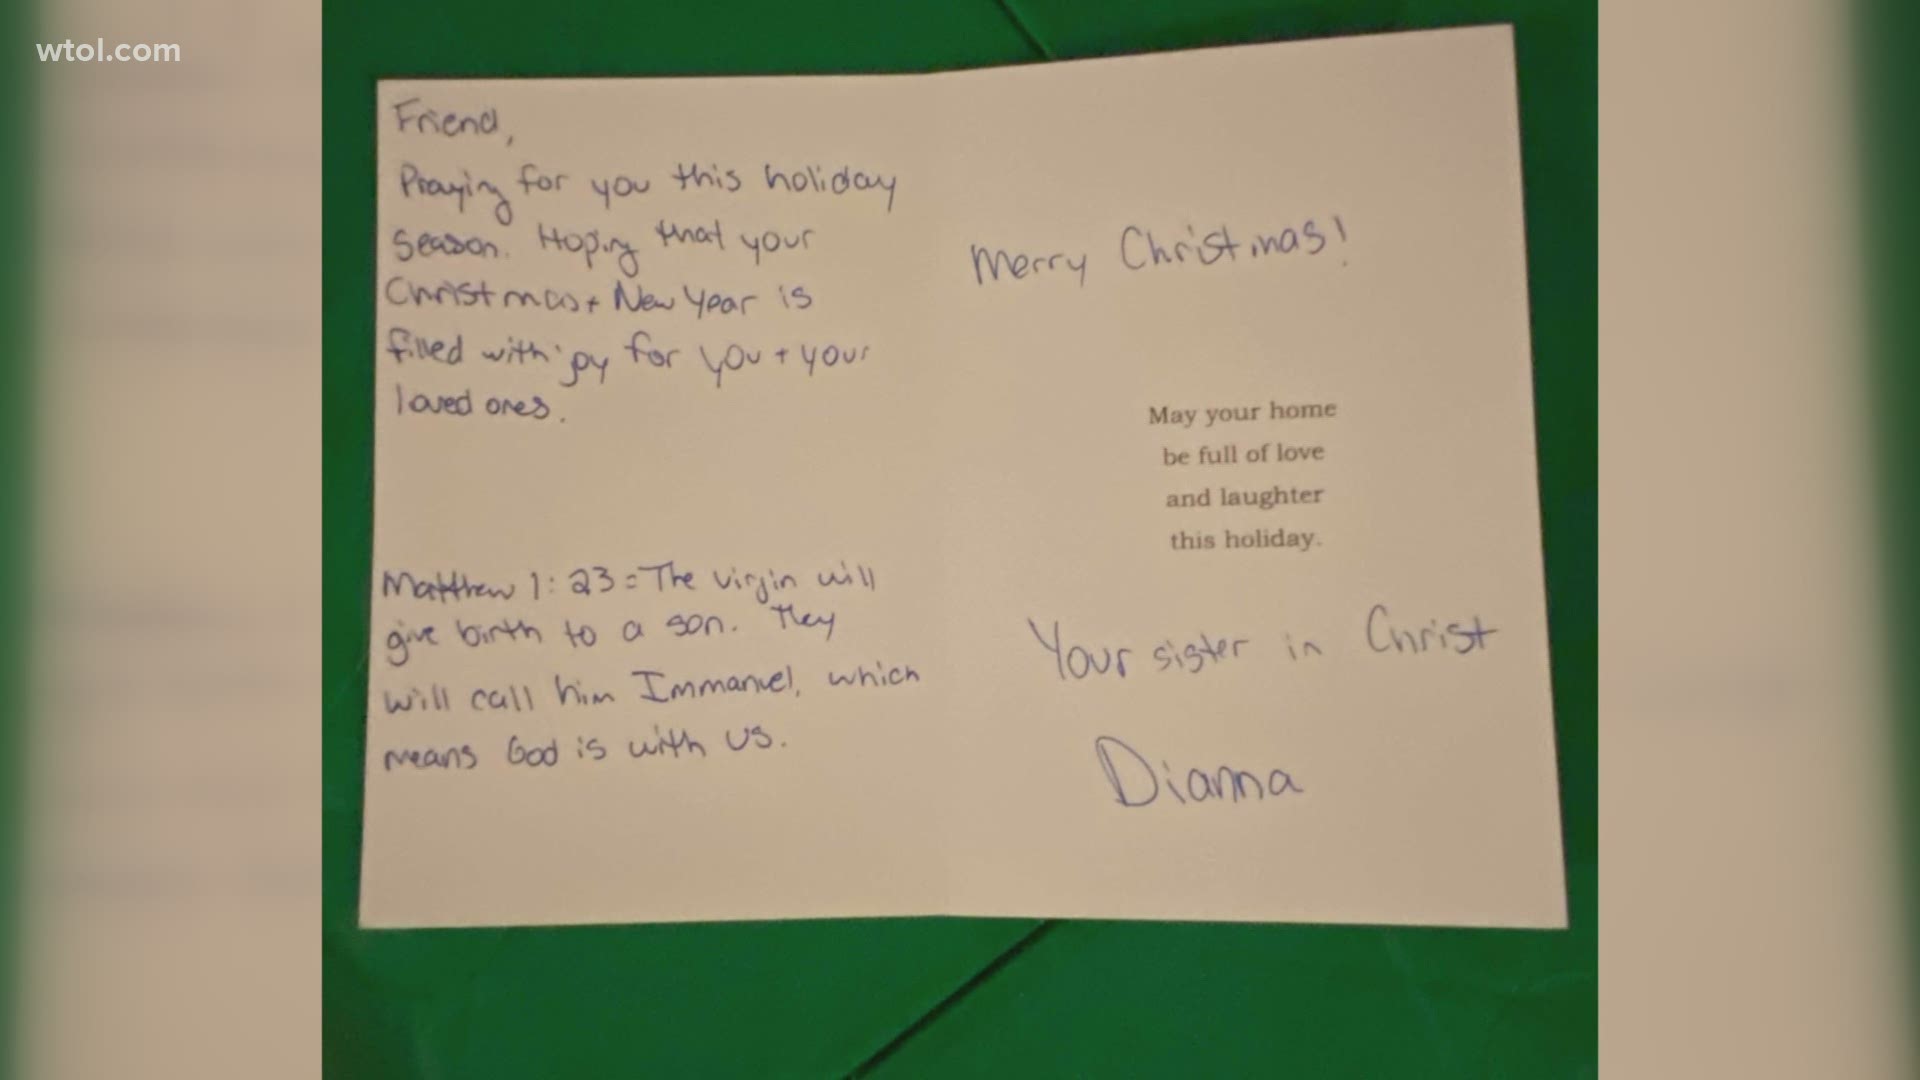 wtol.com
Friend,
Praying for you this holiday
season. Hoping that your
Christmas + New Year is
filled with joy for you + your
loved ones.
Matthew 1:23 = The virgin will
give birth to a son. They
will call him Immanuel, which
means God is with us.
Merry Christmas!
May your home
be full of love
and laughter
this holiday.
Your sister in Christ
Dianna